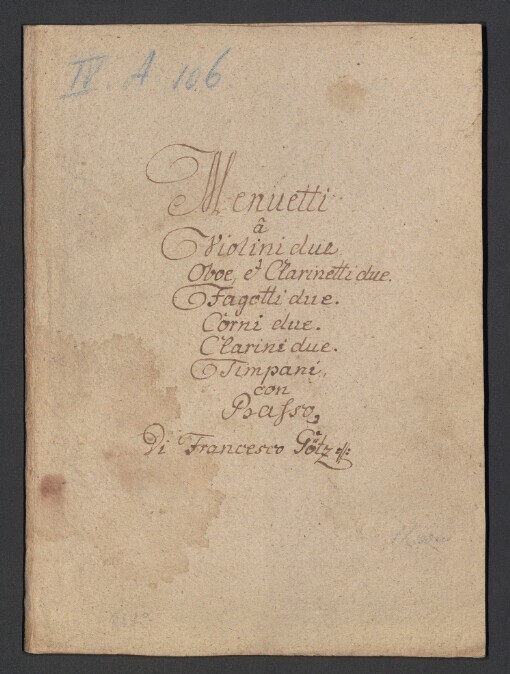 IV. A 106
Menuetti
â
Violini due
Oboe, è Clarinetti due.
Fagotti due.
Corni due.
Clarini due.
Timpani,
con
Basso,
Di Francesco Götz